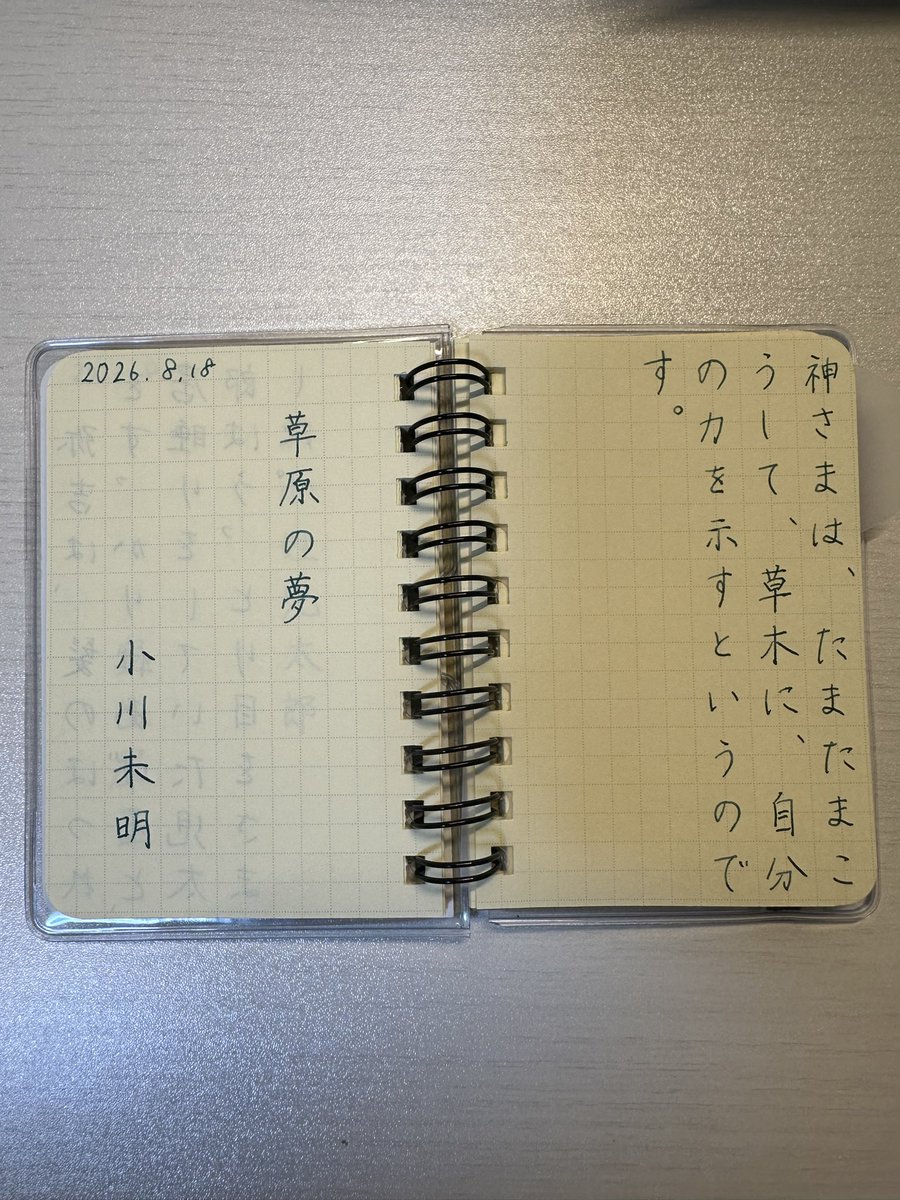 神さまは、たまたまこ
うして、草木に、自分
の力を示すというので
す。
2026.8.18
草原の夢
小川未明